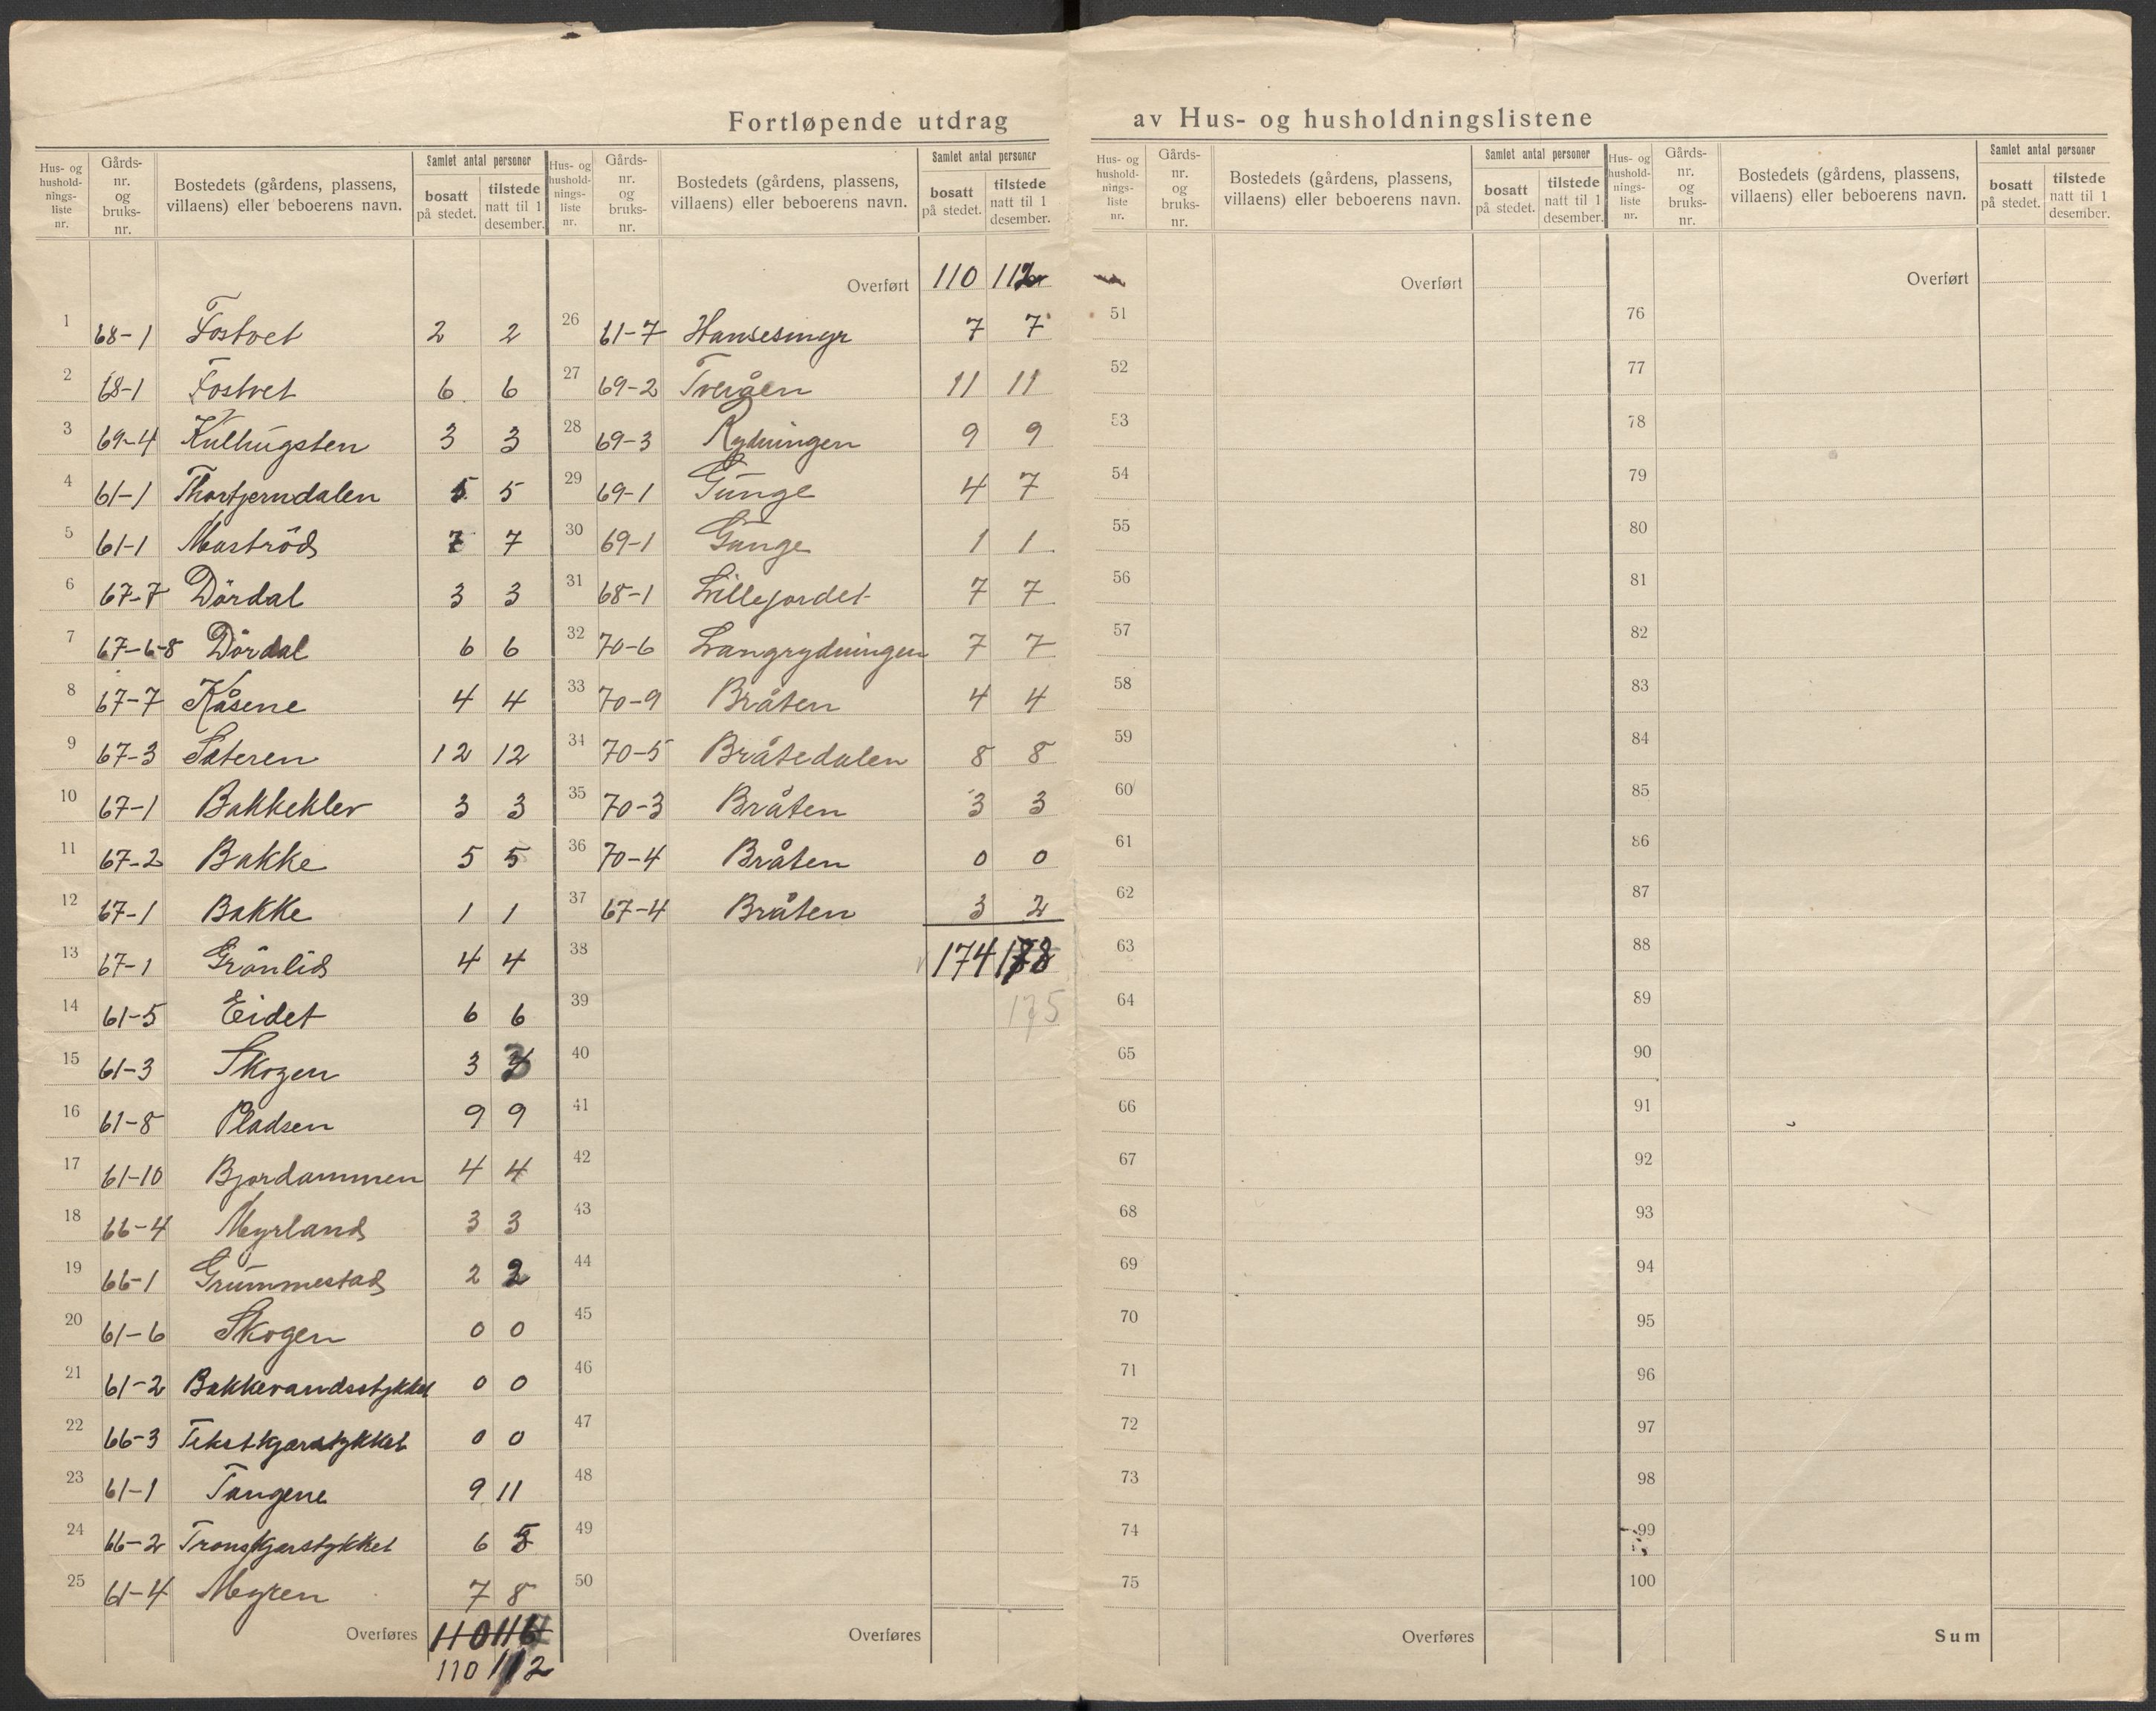 Fortløpende utdrag av Hus- og husholdningslistene
Hus- og husholdningsliste nr. Gårds-nr. og bruks-nr. Bostedets (gårdens, plassens, villaens) eller beboerens navn. Samlet antal personer bosatt på stedet. tilstede natt til 1 desember.
1 68-1 Fostvet 2 2
2 68-1 Fostvet 6 6
3 69-4 Kulhugsten 3 3
4 61-1 Thorbjerndalen 5 5
5 61-1 Maströd 7 7
6 67-7 Dördal 3 3
7 67-6-8 Dördal 6 6
8 67-7 Kåsene 4 4
9 67-3 Sateren 12 12
10 67-1 Bakkeklev 3 3
11 67-2 Bakke 5 5
12 67-1 Bakke 1 1
13 67-1 Grönlid 4 4
14 61-5 Eidet 6 6
15 61-3 Skogen 3 3
16 61-8 Pladsen 9 9
17 61-10 Bjordammen 4 4
18 66-4 Myrland 3 3
19 66-1 Grummestad 2 2
20 61-6 Skogen 0 0
21 61-2 Bakkevandsstykket 0 0
22 66-3 Tekstkjærstykket 0 0
23 61-1 Tangene 9 11
24 66-2 Transkjærstykket 6 5
25 61-4 Myren 7 8
Overføres 110 116
110 112
Hus- og husholdningsliste nr. Gårds-nr. og bruks-nr. Bostedets (gårdens, plassens, villaens) eller beboerens navn. Samlet antal personer bosatt på stedet. tilstede natt til 1 desember.
Overført 110 112
26 61-7 Hansesmyr 7 7
27 69-2 Tveråen 11 11
28 69-3 Rydningen 9 9
29 69-1 Gunge 4 7
30 69-1 Gunge 1 1
31 68-1 Lillejordet 7 7
32 70-6 Langrydningen 7 7
33 70-9 Bråten 4 4
34 70-5 Bråtedalen 8 8
35 70-3 Bråten 3 3
36 70-4 Bråten 0 0
37 67-4 Bråten 3 2
38 174 178
39 175
40
41
42
43
44
45
46
47
48
49
50
Overføres
Hus- og husholdningsliste nr. Gårds-nr. og bruks-nr. Bostedets (gårdens, plassens, villaens) eller beboerens navn. Samlet antal personer bosatt på stedet. tilstede natt til 1 desember.
Overført
51
52
53
54
55
56
57
58
59
60
61
62
63
64
65
66
67
68
69
70
71
72
73
74
75
Overføres
Hus- og husholdningsliste nr. Gårds-nr. og bruks-nr. Bostedets (gårdens, plassens, villaens) eller beboerens navn. Samlet antal personer bosatt på stedet. tilstede natt til 1 desember.
Overført
76
77
78
79
80
81
82
83
84
85
86
87
88
89
90
91
92
93
94
95
96
97
98
99
100
Sum